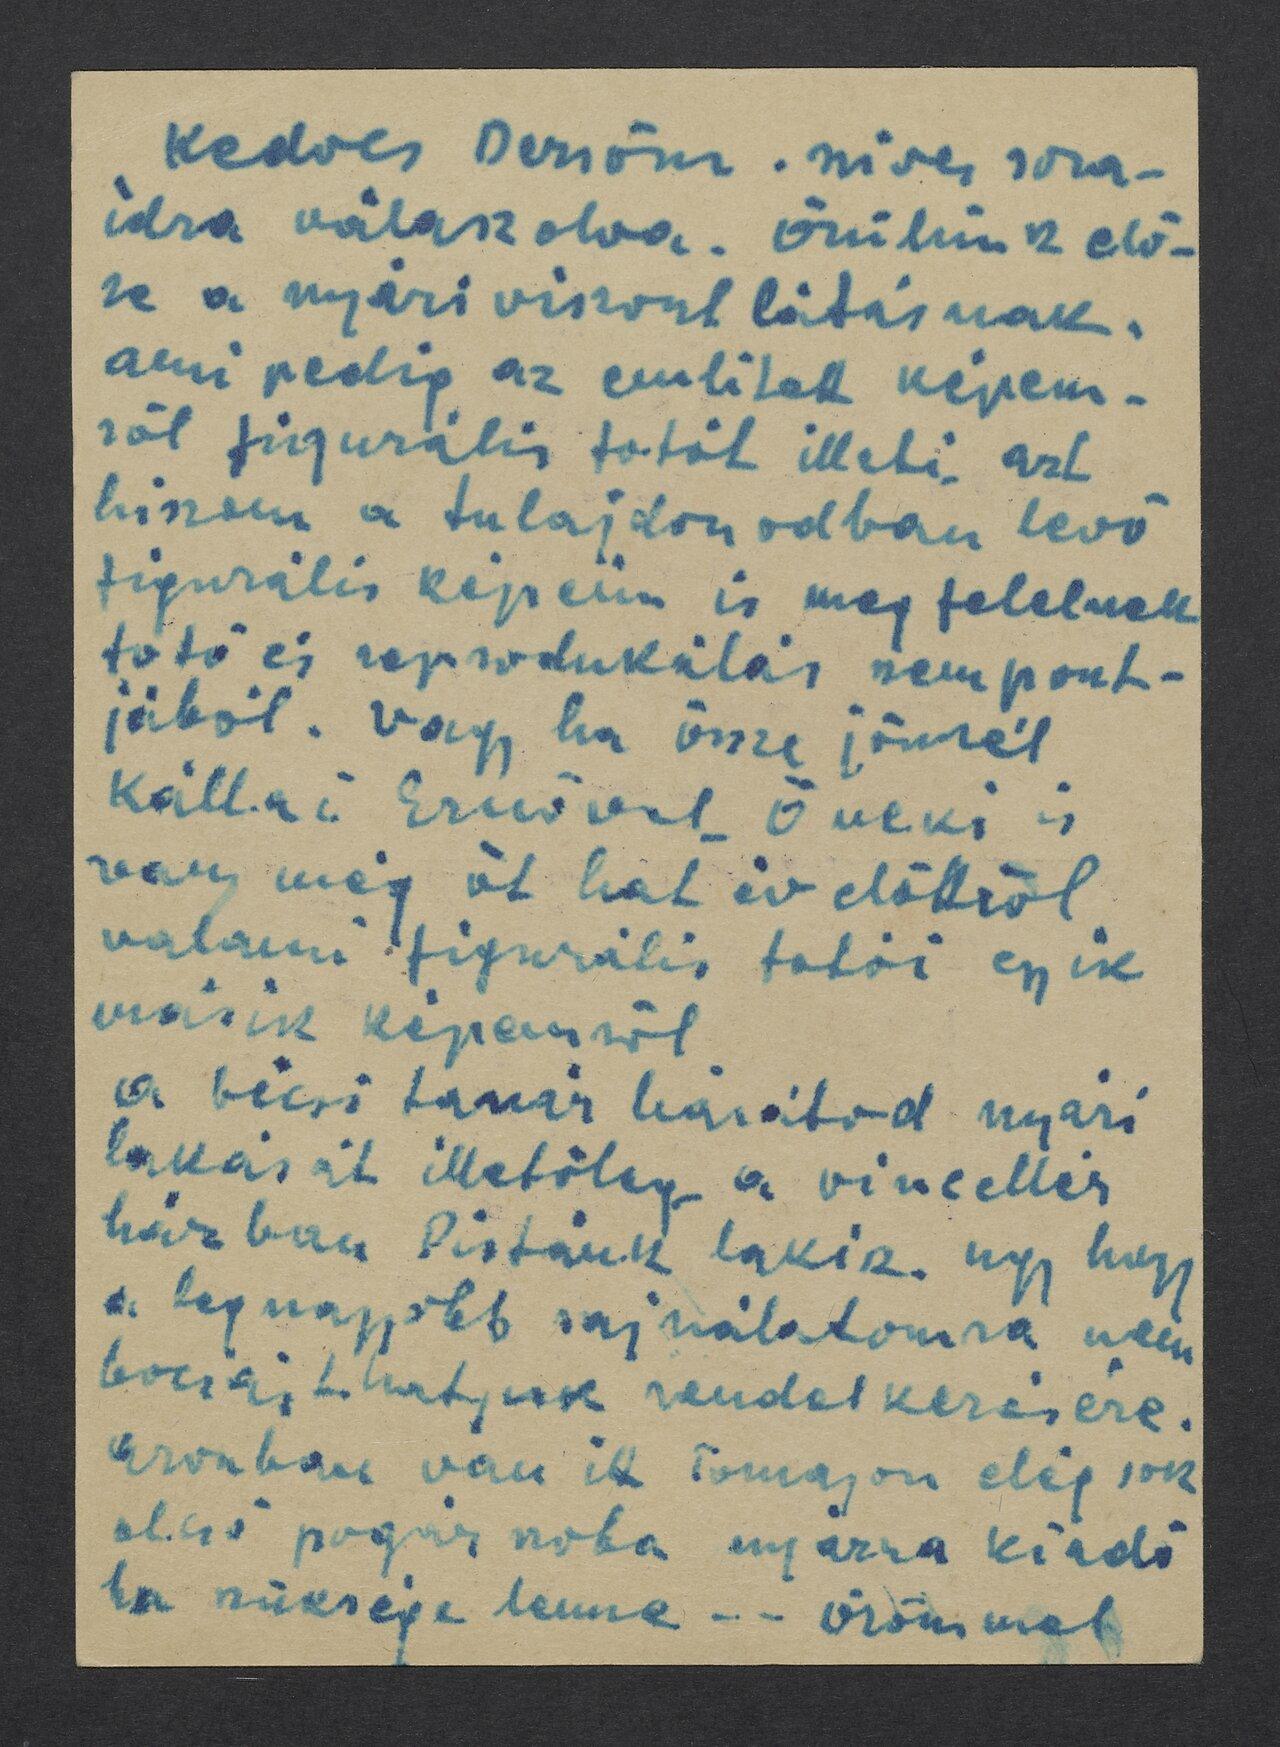 Kedves Dezsőm. szives sora-
idra válaszolva. Örülünk elő-
re a nyári viszont látásnak.
ami pedig az emlitett képem-
ről figurális fotót illeti. azt
hiszem a tulajdonodban levő
figurális képeim is megfelelnek
fotó és reprodukálás szempont-
jából. vagy ha össze jönnél
Kállai Ernővel Ő neki is
van még öt hat év előttről
valami figurális fotói egyik
másik képemről
a bécsi tanár barátod nyári
lakását illetőleg a vincellér
házban Pistáék lakik. ugy hogy
a legnagyobb sajnálatomra nem
bocsájthatjuk rendelkezésére.
azonban van itt Tomajon elég sok
olcsó pógár szoba nyárra kiadó
ha szüksége lenne -- örömmel